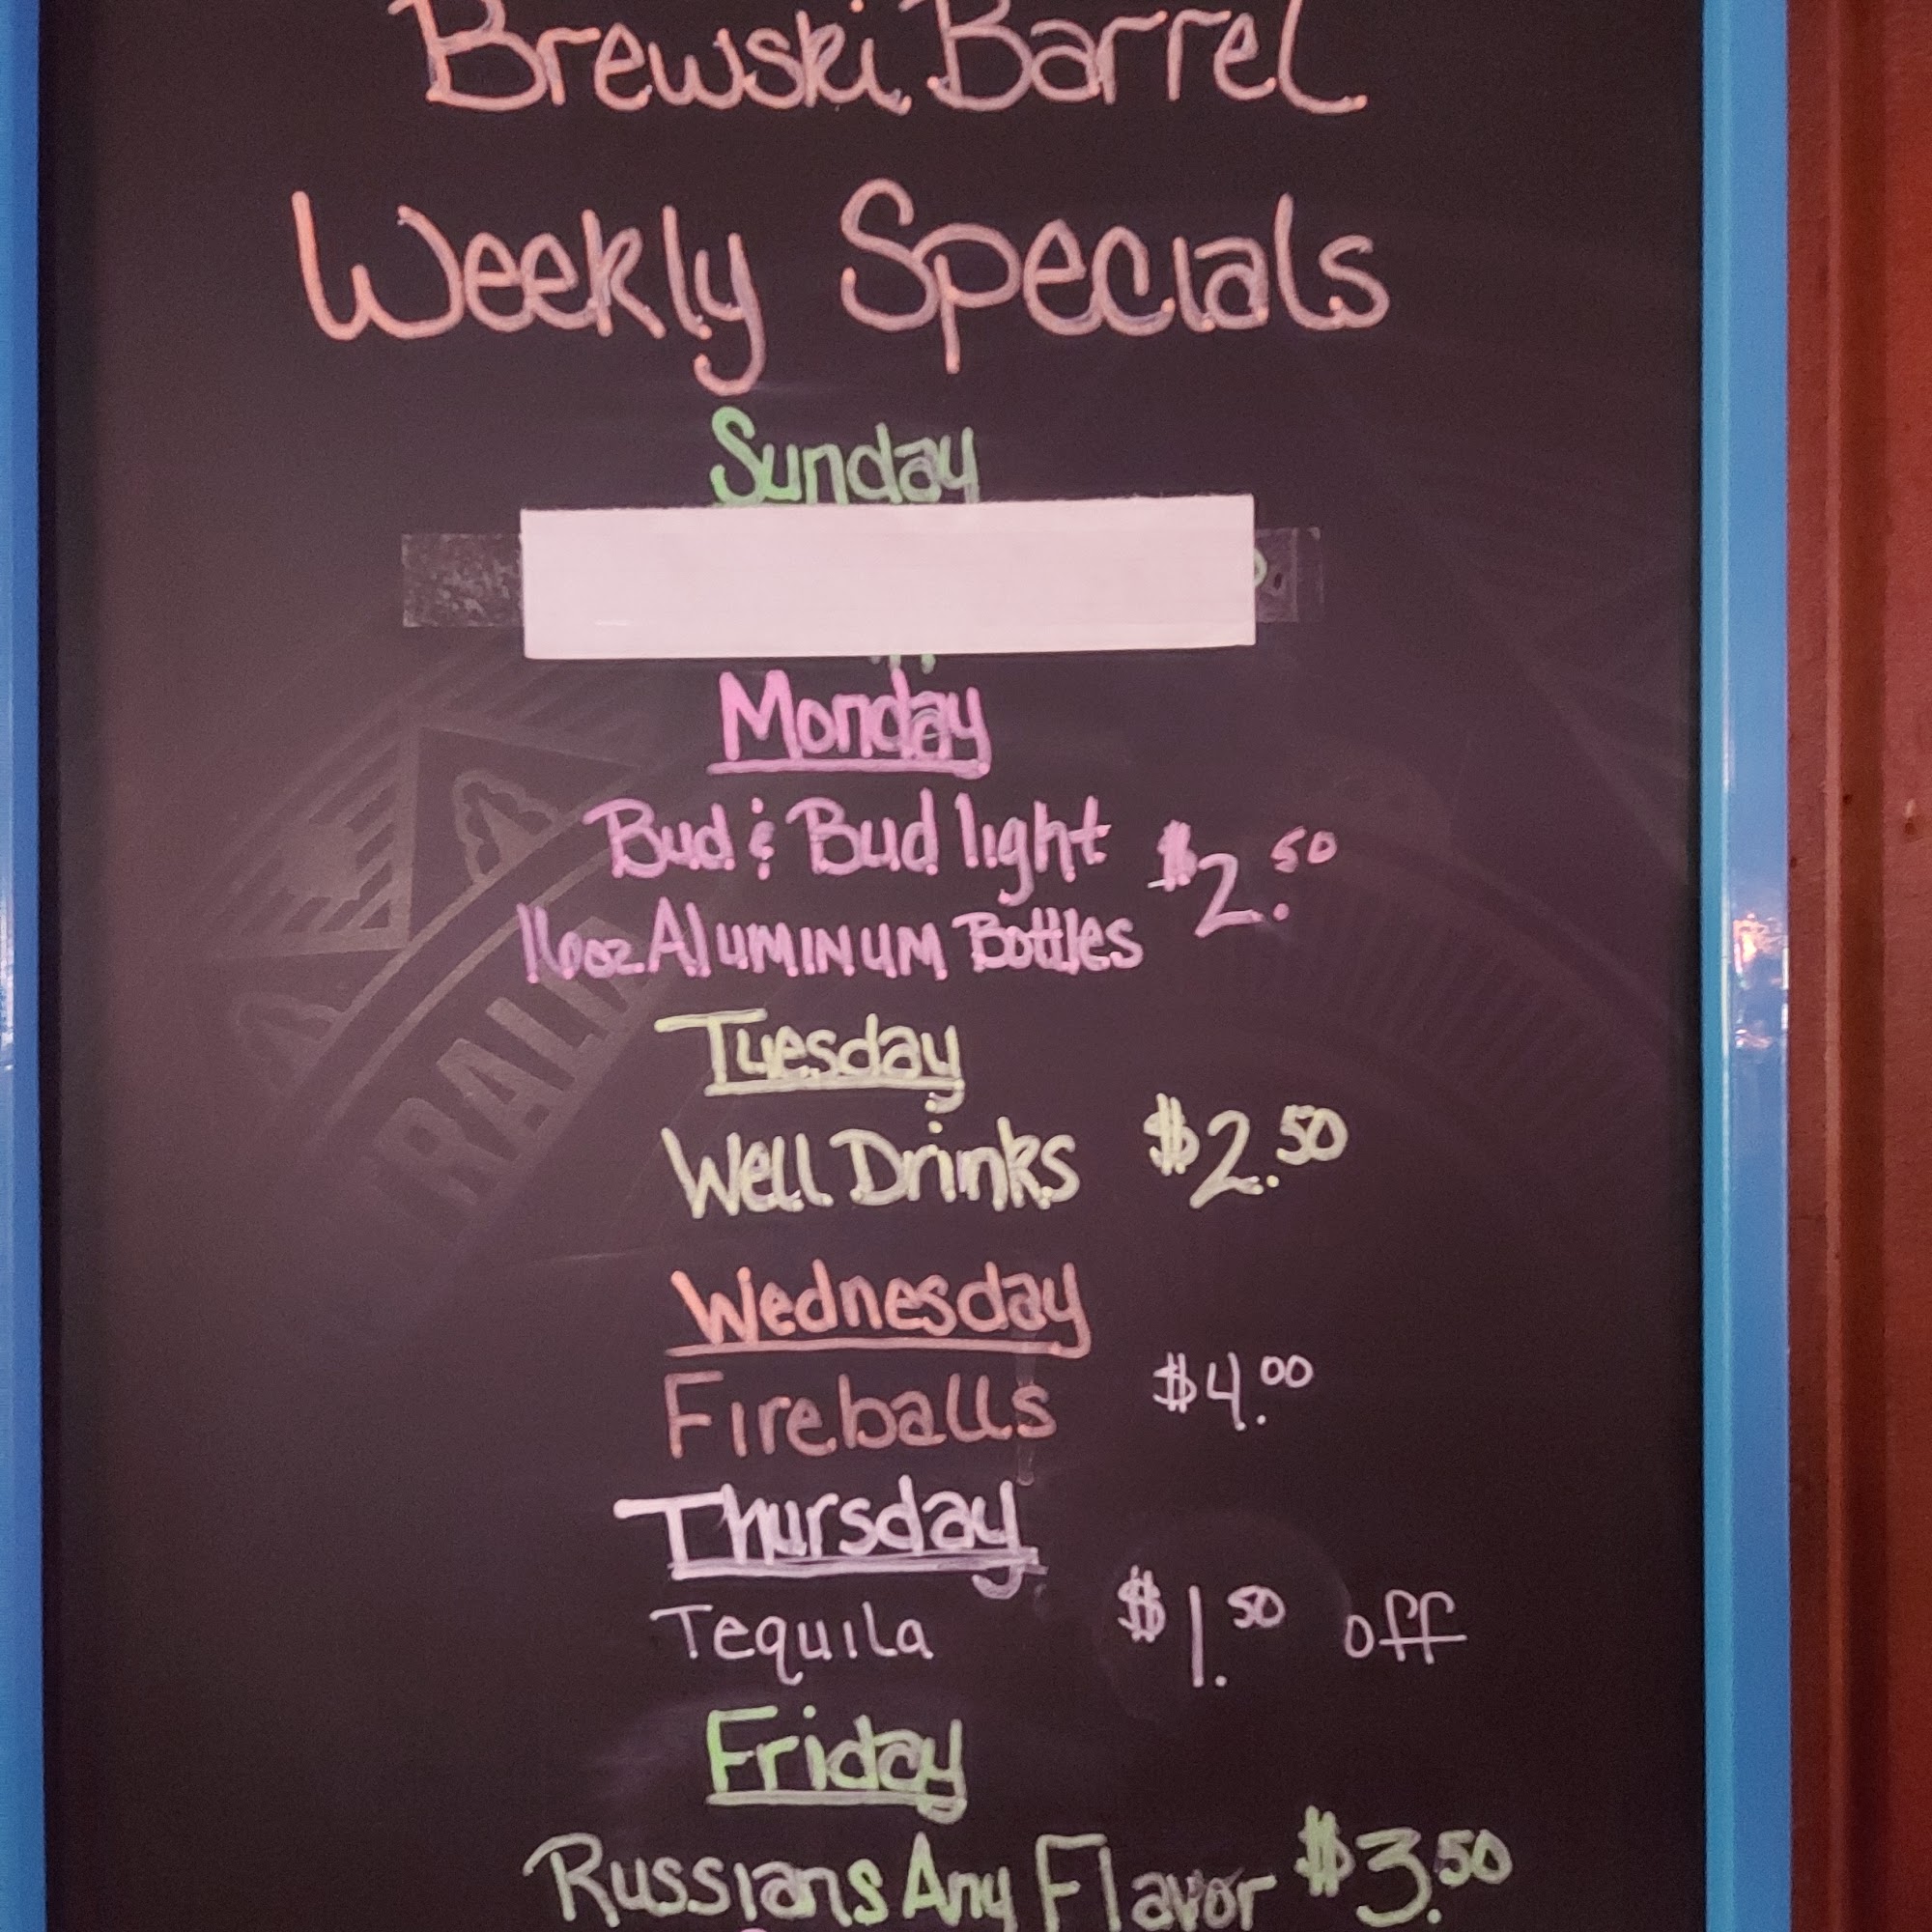 Brewski Barrel
Weekly Specials
Sunday
Monday
Bud & Bud light $2.50
16oz ALUMINUM Bottles
Tuesday
Well Drinks $2.50
Wednesday
Fireballs $4.00
Thursday
Tequila $1.50 off
Friday
Russians Any Flavor $3.50